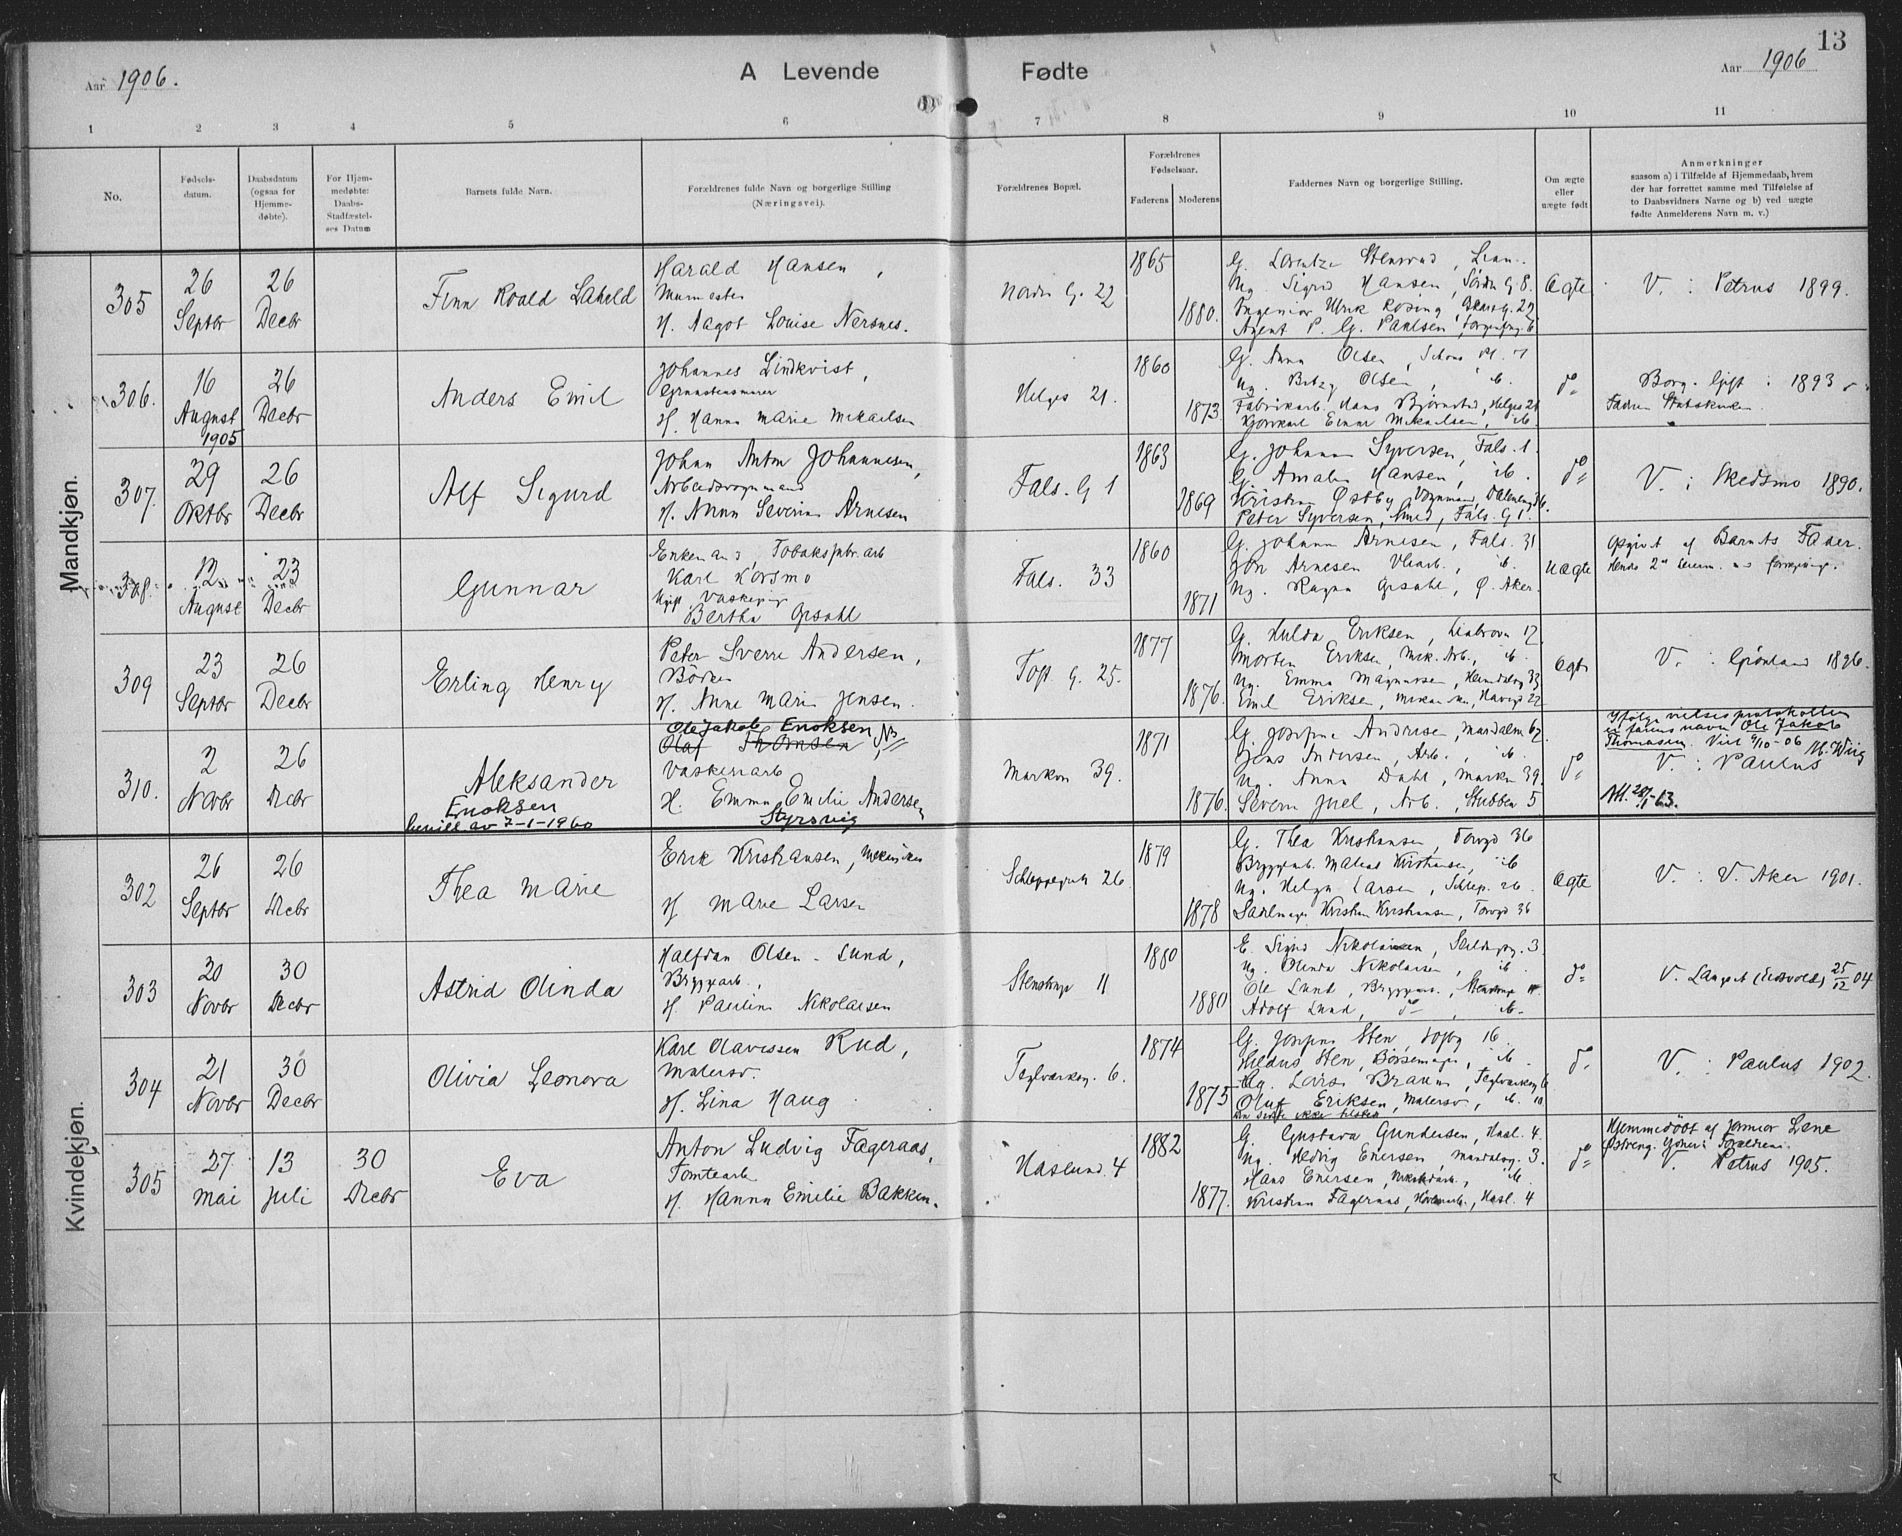 13
Aar 1906.
A Levende
Fødte
Aar 1906
1 2 3 4 5 6 7 8 9 10 11
No.
Fødsels-
datum.
Daabsdatum
(ogsaa for
Hjemme-
døbte).
For Hjem-
medøbte:
Daabs-
Stadfæstel-
ses Datum
Barnets fulde Navn.
Forældrenes fulde Navn og borgerlige Stilling
(Næringsvei).
Forældrenes Bopæl.
Forældrenes
Fødselsaar.
Faderens
Moderens
Faddernes Navn og borgerlige Stilling.
Om ægte
eller
uægte født
Anmerkninger
saasom a) i Tilfælde af Hjemmedaab, hvem
der har forrettet samme med Tilføielse af
to Daabsvidners Navne og b) ved uægte
fødte Anmelderens Navn m. v.)
Mandkjøn.
305
26
Septbr
26
Decbr
Finn Roald
Harald Hansen,
Murmester
H. Aagot Louise Nersnes.
Nordre G. 22
1865
1880.
G. Lorentze Stensrud,
Ug. Sigrid Hansen, G. 8.
Ingeniør Ulrik Rosing, 22
Agent P. G. Paulsen, 6
Ægte
V. i Petrus 1899.
306.
16
August
1905
26
Decbr
Anders Emil
Johannes Lindkvist,
H. Hanna Marie Mikaelsen
Helges 21.
1860
1873
G. Anna Olsen, Schous Pl. 7
Ug. Olsen, ib.
Fabrikarb. Hans Bjørnstad, Helges 21
Einar Mikaelsen, ib
do
Borg. Gift 1893
Faderen Statskirken
307.
29
Oktbr
26
Decbr
Alf Sigurd
Johan Anton Johannesen,
Arbeidsvognmand
H. Anna Severine Arnesen
Fals. G 1
1863
1869
G. Johanna Syversen, Fals. 1.
G. Amalie Hansen, ib.
Kristian Østby, Vognmand,
Peter Syversen, Smed, Fals. G 1.
do
V. i Skedsmo 1890.
308.
12
August
23
Decbr
Gunnar
Enkemand, Tobaksfabr.arb
Karl Korsmo
Ugift Vaskepige
Bertha Opsahl
Fals. 33
1860
1871
G. Johanna Arnesen, Fals. 31
Jon Arnesen ib.
Ug. Ragna Opsahl, Ø. Aker.
Uægte
Opgivet af Barnets Fader.
309
23
Septbr
26
Decbr
Erling Henry
Peter Sverre Andersen,
Bødker
H. Anne Marie Jensen.
Toft. G. 25.
1877
1876.
G. Hulda Eriksen, 17.
Morten Eriksen, Mek. Arb., ib.
Ug. Emma Magnussen, 33
Emil Eriksen, 22
Ægte
V. i Grønland 1896.
310.
2
Novbr
26
Decbr
Aleksander
Enoksen
bevill av 7-1-1960
Ole Jakob Enoksen
Olaf Thomsen NB
Vaskeriarb
H. Emma Emilie Andersen
Styrsvig
Markvn 39.
1871
1876.
G. Josefine Andersen, Mandalsn 67.
Jens Andersen, Arb., ib.
Ug. Anna Dahl, Markvn 39.
Severin Juel, Arb., Stubben 5
do
Ifølge vielsesprotokollen
er farens navn Ole Jakob
Thomasen. Viet 6/10-06 M. Wiig
V. i Paulus
Att. 28/1-63.
Kvindekjøn.
302
26
Septbr
26
Decbr
Thea Marie
Erik Kristiansen,
H Marie Larsen
Schleppegrells 26
1879
1878
G. Thea Kristiansen, Torvgd 36
Bryggearb. Kristiansen, ib
Ug. Helga Larsen, Schlep. 26.
Sadelmager Kristian Kristiansen, Torvgd 36
Ægte
V. i V. Aker 1901.
303
20
Novbr
30
Decbr
Astrid Olinda
Halfdan Olsen-Lund,
Bryggearb.,
H Pauline Nikolaisen
Stenstrups 11
1880
1880
E. Sigrid Nikolaisen, 3
Ug. Olinda Nikolaisen, ib.
Ole Lund, Bryggearb., Stenstrups 11
Adolf Lund, do ib.
do
V. Langset (Eidsvold) 25/12 04
304
21
Novbr
30
Decbr
Olivia Leonora
Karl Olavessen Rud,
Malersv.
H. Lina Haug
Teglverksg. 6.
1874
1875
G. Josefine Sten, 16.
Sten, Børsemager, ib
Ug. Lovise Braun, Teglverksg 6
Oluf Eriksen, Malersv, ib. 10
do
V. i Paulus 1902.
305
27
Mai
13
Juli
30
Decbr
Eva
Anton Ludvig Fageraas,
Tomtearb
H. Hanna Emilie Bakken.
Haslund. 4
1882
1877.
G. Gustava Gundersen, Hasl. 4.
Ug. Hedvig Enersen, Mandalsg. 3.
Hans Enersen, ib.
Kristian Fageraas, Hasl. 4
do
Hjemmedøbt af Jormor Lene
Østreng. Forældrene
V. Petrus 1905.